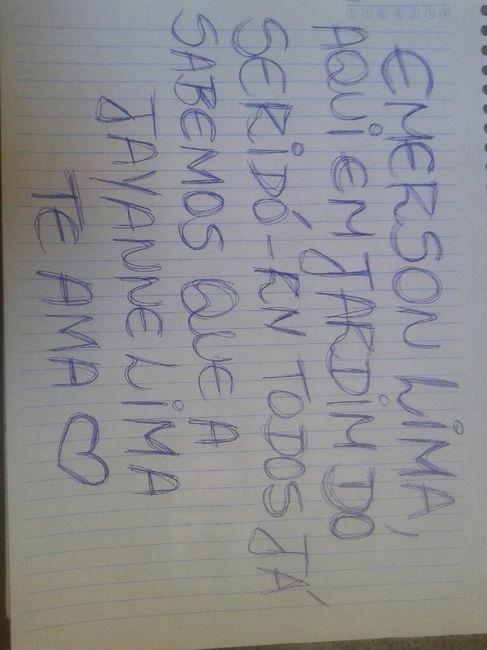 EMERSON LIMA,
AQUI EM JARDIM DO
SERIDÓ-RN TODOS JÁ
SABEMOS QUE A
JAYANNE LIMA
TE AMA ♡